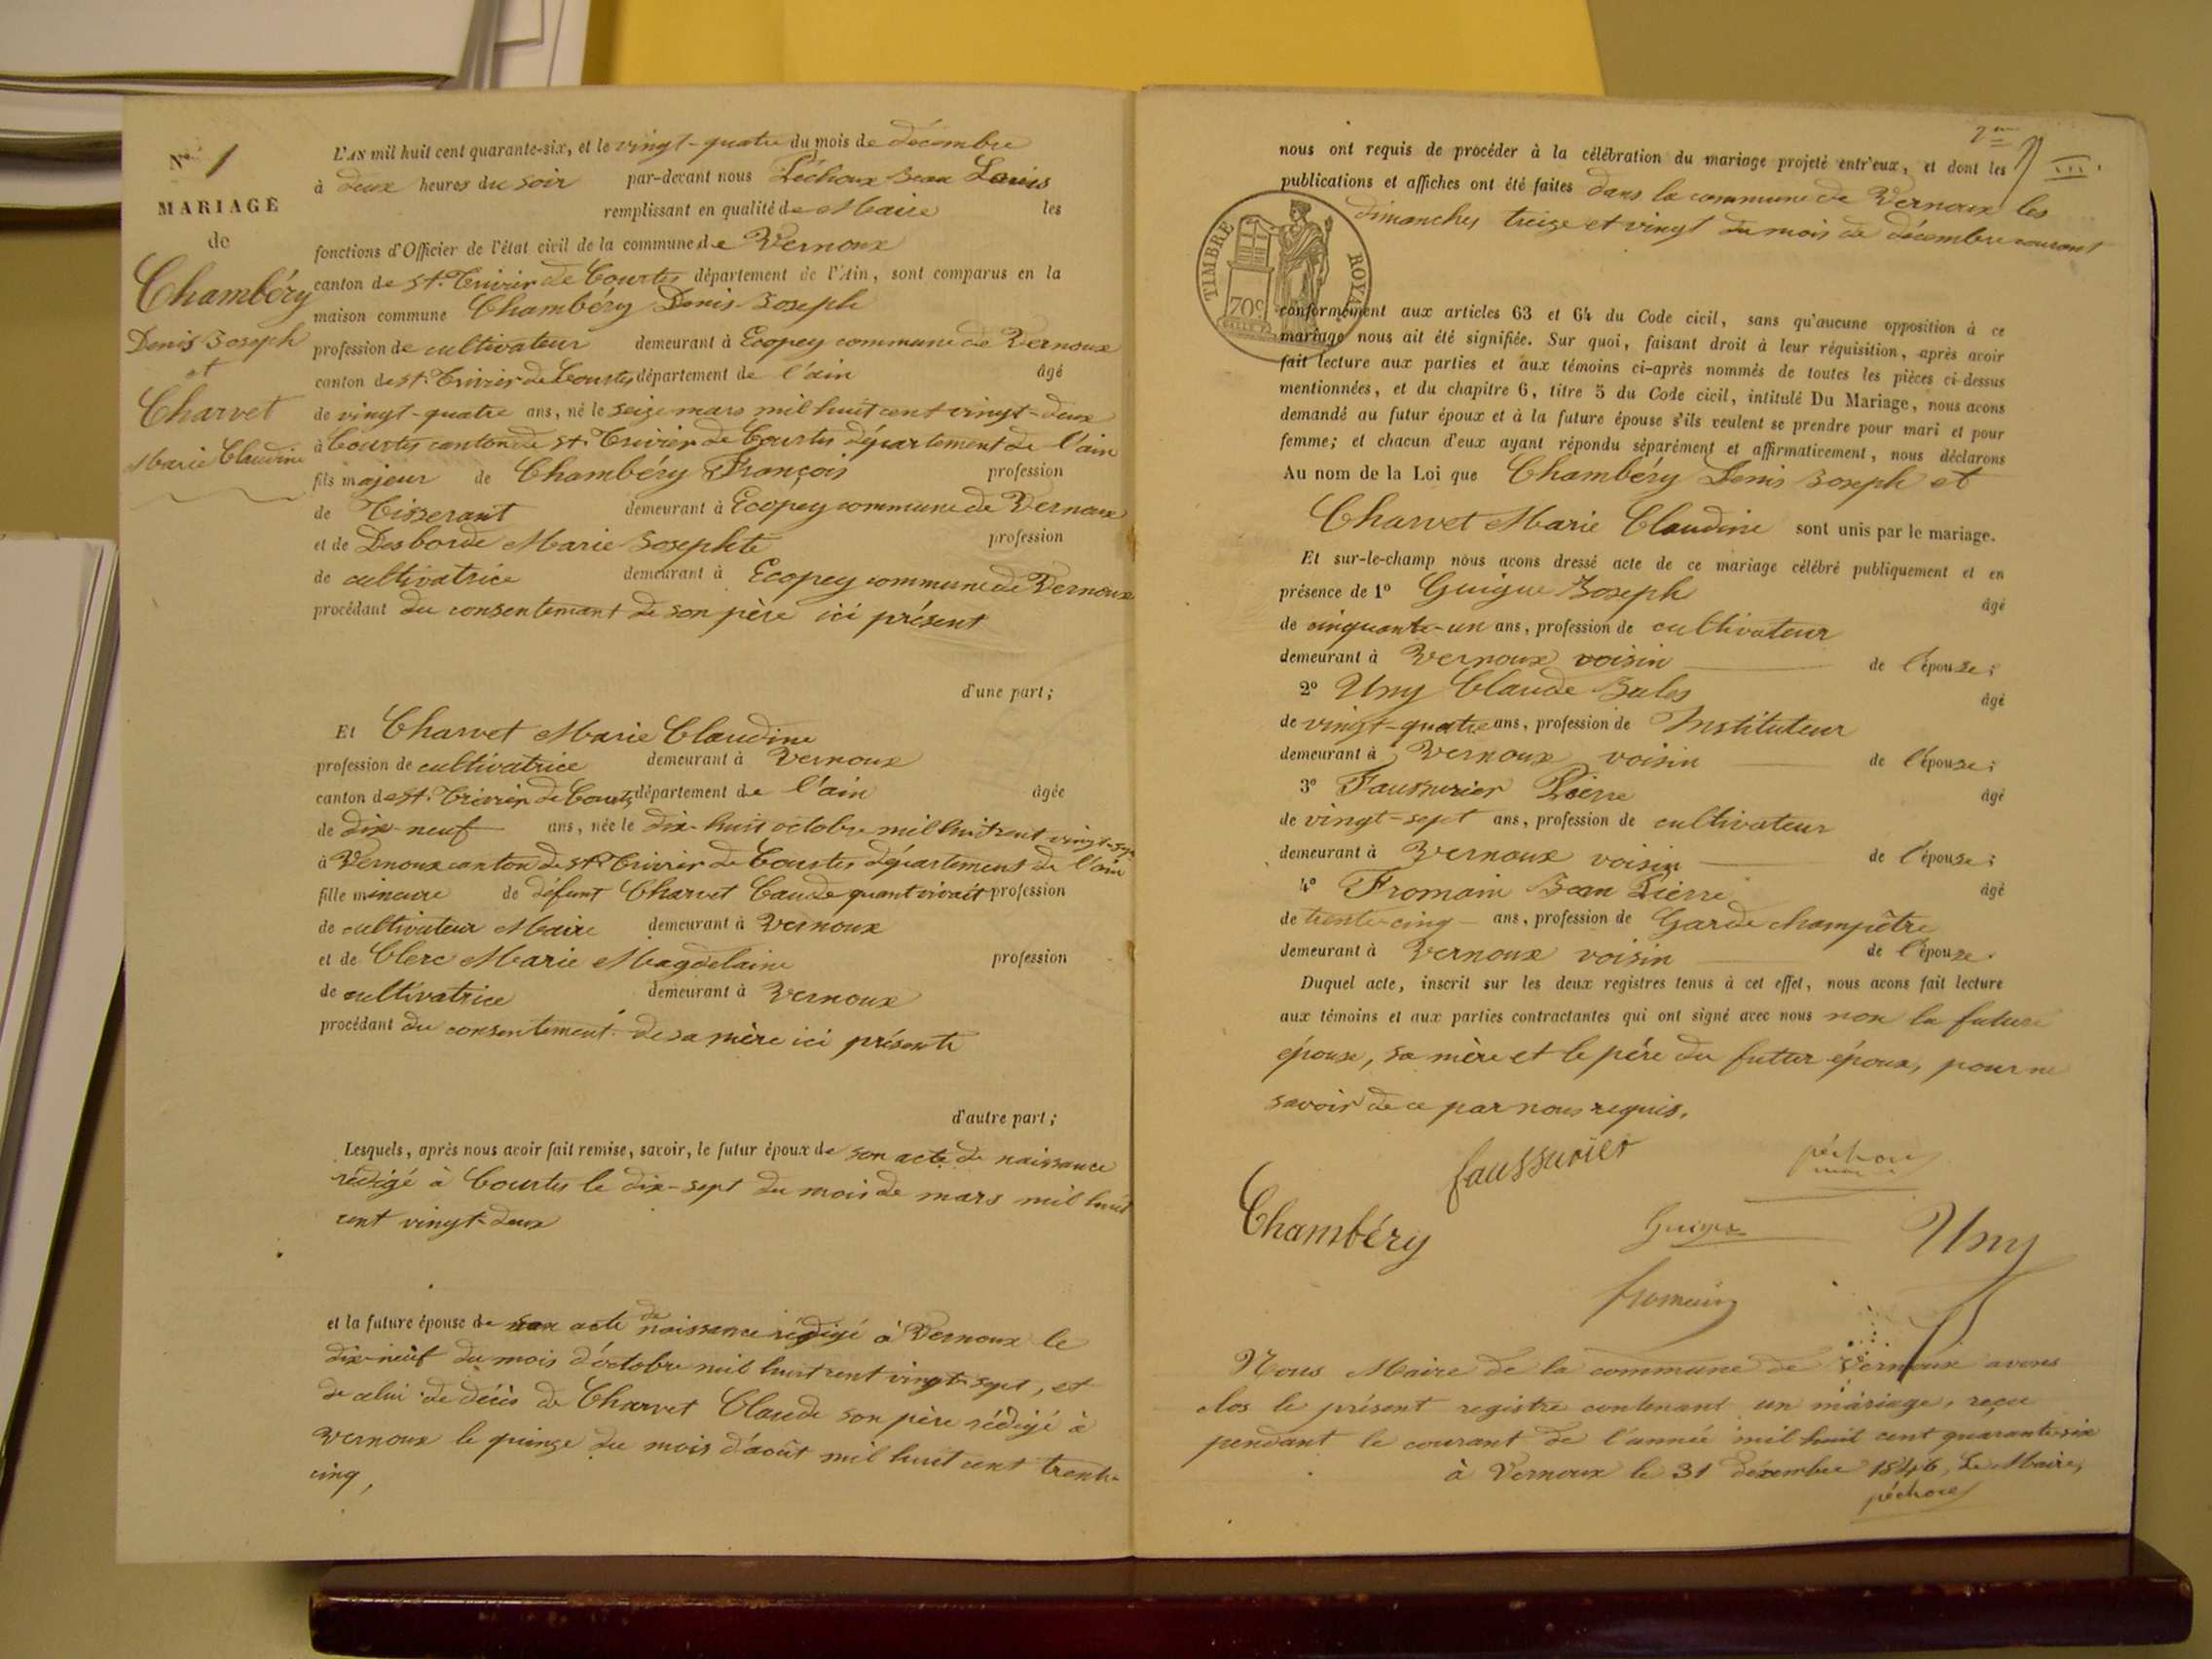 No. 1
MARIAGE
de
Chambéry
Denis Joseph
et
Charvet
Marie Claudine
L'AN mil huit cent quarante-six, et le vingt-quatre du mois de décembre
à deux heures du soir par-devant nous Péchoux Jean Louis
remplissant en qualité de Maire les
fonctions d'Officier de l'état civil de la commune de Vernoux
canton de St. Trivier de Courtes département de l'Ain, sont comparus en la
maison commune Chambéry Denis Joseph
profession de cultivateur demeurant à Ecopey commune de Vernoux
canton de St. Trivier de Courtes département de l'ain âgé
de vingt-quatre ans, né le seize mars mil huit cent vingt-deux
à Courtes canton de St. Trivier de Courtes département de l'ain
fils majeur de Chambéry François profession
de Tisserant demeurant à Ecopey commune de Vernoux
et de Desborde Marie Josephte profession
de cultivatrice demeurant à Ecopey commune de Vernoux
procédant du consentemant de son père ici présent
d'une part;
Et Charvet Marie Claudine
profession de cultivatrice demeurant à Vernoux
canton de St. Trivier de Courtes département de l'ain âgée
de dix-neuf ans, née le dix-huit octobre mil huit cent vingt-sept
à Vernoux canton de St. Trivier de Courtes département de l'ain
fille mineure de défunt Charvet Caude quant vivait profession
de cultivateur Maire demeurant à Vernoux
et de Clerc Marie Magdelaine profession
de cultivatrice demeurant à Vernoux
procédant du consentement de sa mère ici présente
d'autre part;
Lesquels, après nous avoir fait remise, savoir, le futur époux de son acte de naissance
rédigé à Courtes le dix-sept du mois de mars mil huit
cent vingt-deux
et la future épouse de son acte de naissance rédigé à Vernoux le
dix-neuf du mois d'octobre mil huit cent vingt-sept, et
de celui de décès de Charvet Claude son père rédigé à
Vernoux le quinze du mois d'août mil huit cent trente
cinq,
2me
nous ont requis de procéder à la célébration du mariage projeté entr'eux, et dont les
publications et affiches ont été faites dans la commune de Vernoux les
dimanches treize et vingt du mois de décembre courant
TIMBRE ROYAL
70c
conformément aux articles 63 et 64 du Code civil, sans qu'aucune opposition à ce
mariage nous ait été signifiée. Sur quoi, faisant droit à leur réquisition, après avoir
fait lecture aux parties et aux témoins ci-après nommés de toutes les pièces ci-dessus
mentionnées, et du chapitre 6, titre 5 du Code civil, intitulé Du Mariage, nous avons
demandé au futur époux et à la future épouse s'ils veulent se prendre pour mari et pour
femme; et chacun d'eux ayant répondu séparément et affirmativement, nous déclarons
Au nom de la Loi que Chambéry Denis Joseph et
Charvet Marie Claudine sont unis par le mariage.
Et sur-le-champ nous avons dressé acte de ce mariage célébré publiquement et en
présence de 1º Guigue Joseph âgé
de cinquante-un ans, profession de cultivateur
demeurant à Vernoux voisin de l'épouse;
2º Uny Claude Jules âgé
de vingt-quatre ans, profession de Instituteur
demeurant à Vernoux voisin de l'épouse;
3º Faussurier Pierre âgé
de vingt-sept ans, profession de cultivateur
demeurant à Vernoux voisin de l'épouse;
4º Fromain Jean Pierre âgé
de trente-cinq ans, profession de Garde champêtre
demeurant à Vernoux voisin de l'épouse.
Duquel acte, inscrit sur les deux registres tenus à cet effet, nous avons fait lecture
aux témoins et aux parties contractantes qui ont signé avec nous non la future
épouse, sa mère et le père du futur époux, pour ne
savoir de ce par nous requis.
faussurier péchoux
Chambéry Guigue Uny
fromain
Nous Maire de la commune de Vernoux avons
clos le présent registre contenant un mariage, reçu
pendant le courant de l'année mil huit cent quarante-six
à Vernoux le 31 décembre 1846, Le Maire,
péchoux